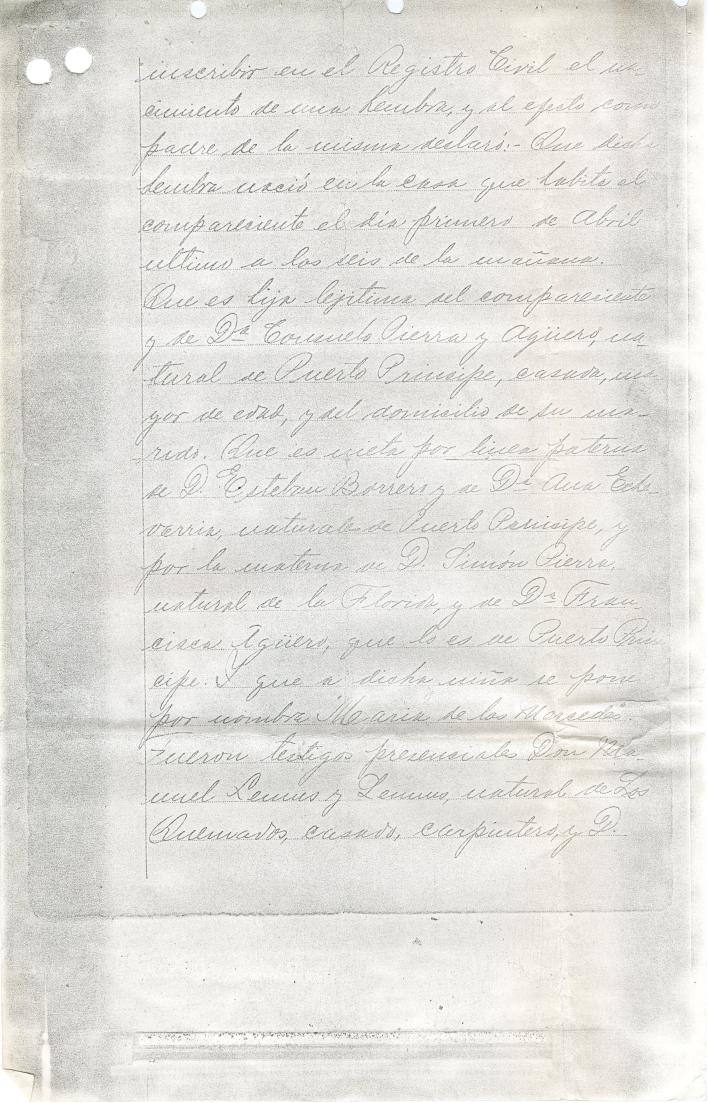 inscribir en el Registro Civil el na-
cimiento de una hembra, y al efecto como
padre de la misma declaró:- Que dicha
hembra nació en la casa que habita el
compareciente el día primero de Abril
ultimo a las seis de la mañana.
Que es hija lejitima del compareciente
y de Dª Consuelo Pierra y Agüero, na-
tural de Puerto Principe, casada, ma
yor de edad, y del domicilio de su ma-
rido. Que es nieta por linea paterna
de D. Esteban Borrero y de Dª Ana Eche
varria, naturales de Puerto Principe, y
por la materna de D. Simón Pierra,
natural de la Florida, y de Dª Fran
cisca Agüero, que lo es de Puerto Prin
cipe. Y que a dicha niña se pone
por nombre "Maria de las Mercedes".
Fueron testigos presenciales Don Ma-
nuel Lemus y Lemus, natural de Los
Quemados, casado, carpintero, y D.